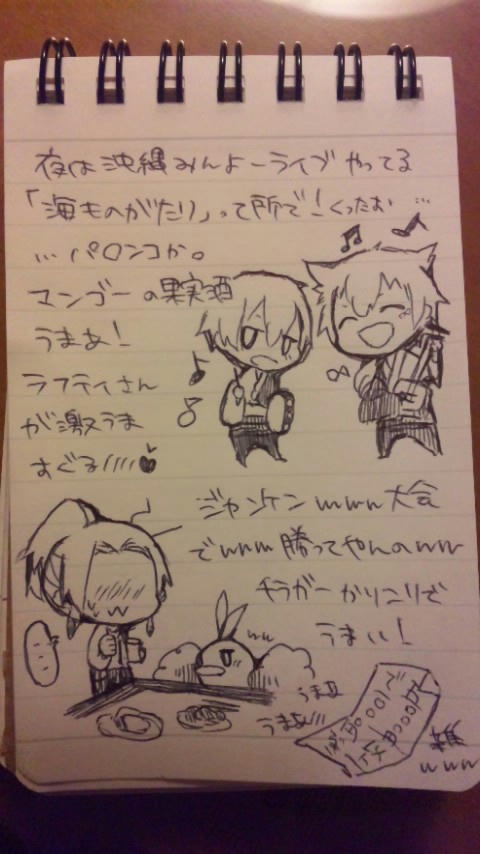 夜は沖縄みんよーライブやってる
「海ものがたり」って所で！くったお…
…パロンコか。
マンゴーの果実酒
うまぁ！
ラフティさん
が激うま
すぐる////
ジャンケンwwww大会
でwww勝ってやんのwww
チラガーかりこりで
うまい！
ww
うまぁ
うまぁ///
雑
www